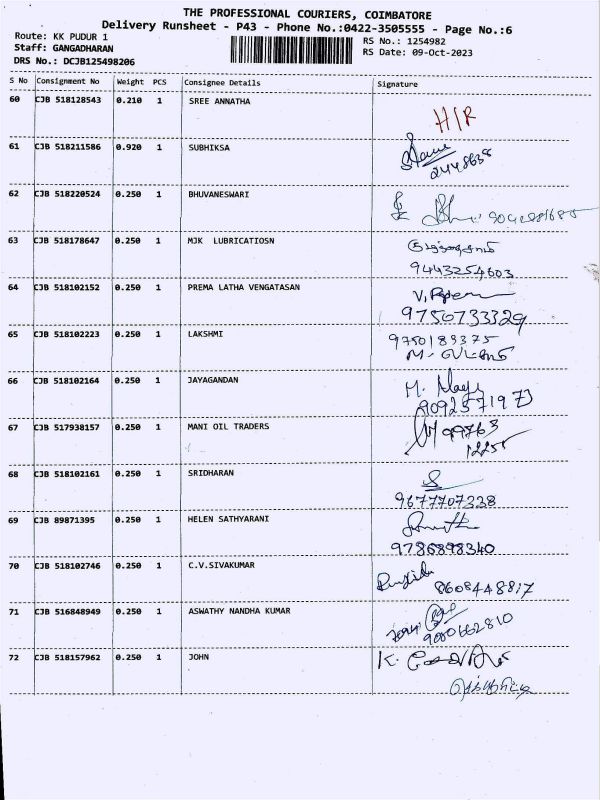 THE PROFESSIONAL COURIERS, COIMBATORE
Delivery Runsheet - P43 - Phone No.:0422-3505555 - Page No.:6
Route: KK PUDUR 1
RS No.: 1254982
Staff: GANGADHARAN
RS Date: 09-Oct-2023
DRS No.: DCJB125498206
S No Consignment No Weight PCS Consignee Details Signature
60 CJB 518128543 0.210 1 SREE ANNATHA
H/R
61 CJB 518211586 0.920 1 SUBHIKSA
2448638
62 CJB 518220524 0.250 1 BHUVANESWARI
63 CJB 518178647 0.250 1 MJK LUBRICATIOSN
9443254603
64 CJB 518102152 0.250 1 PREMA LATHA VENGATASAN
9750733329
65 CJB 518102223 0.250 1 LAKSHMI
9750183375
66 CJB 518102164 0.250 1 JAYAGANDAN
M.
9092571973
67 CJB 517938157 0.250 1 MANI OIL TRADERS
99763
12255
68 CJB 518102161 0.250 1 SRIDHARAN
9677707338
69 CJB 89871395 0.250 1 HELEN SATHYARANI
9786898340
70 CJB 518102746 0.250 1 C.V.SIVAKUMAR
8608448817
71 CJB 516848949 0.250 1 ASWATHY NANDHA KUMAR
9000662810
72 CJB 518157962 0.250 1 JOHN
K.